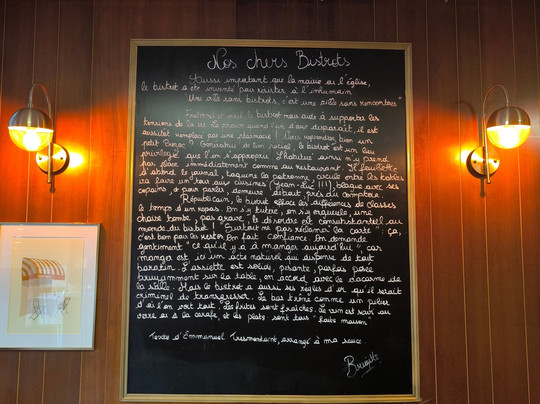 Nos chers Bistrots
Aussi important que la mairie ou l'église,
le bistrot a été inventé pour résister à l'inhumain.
Une ville sans bistrots, c'est une ville sans rencontres"
Fraternel et social le bistrot nous aide à supporter les
tensions de la vie. La preuve quand l'un d'eux disparaît, il est
aussitôt remplacé par une pharmacie ! Vous reprendrez bien un
petit Prozac ? Générateur de lien social, le bistrot est un lieu
privilégié que l'on s'approprie. L'habitué ainsi n'y prend
pas place immédiatement comme au restaurant. Il feuillette
d'abord le journal, taquine la patronne, circule entre les tables
va faire un tour aux cuisines (Jean-Luc !!!), blague avec ses
copains, et pour parler, demeure debout près du comptoir
Républicain, le bistrot efface les différences de classes
le temps d'un repas. On s'y tutoie, on s'y engueule, une
chaise tombe, pas grave, le désordre est consubstantiel au
monde du bistrot ! "Surtout ne pas réclamer la carte" : ça,
c'est bon pour les restos. On fait confiance. On demande
gentiment "ce qu'il y a à manger aujourd'hui", car
manger est ici un acte naturel qui dispense de tout
baratin. L'assiette est solide, pesante, parfois posée
bruyamment sur la table, en accord avec le vacarme de
la salle. Mais le bistrot a aussi ses règles d'or qu'il serait
criminel de transgresser. Le bar trône comme un pilier
d'où l'on voit tout. Les frites sont fraîches. Le vin est servi au
verre ou à la carafe, et les plats sont tous "faits maison"
Texte d'Emmanuel Tresmontant, arrangé à ma sauce.
Brigitte